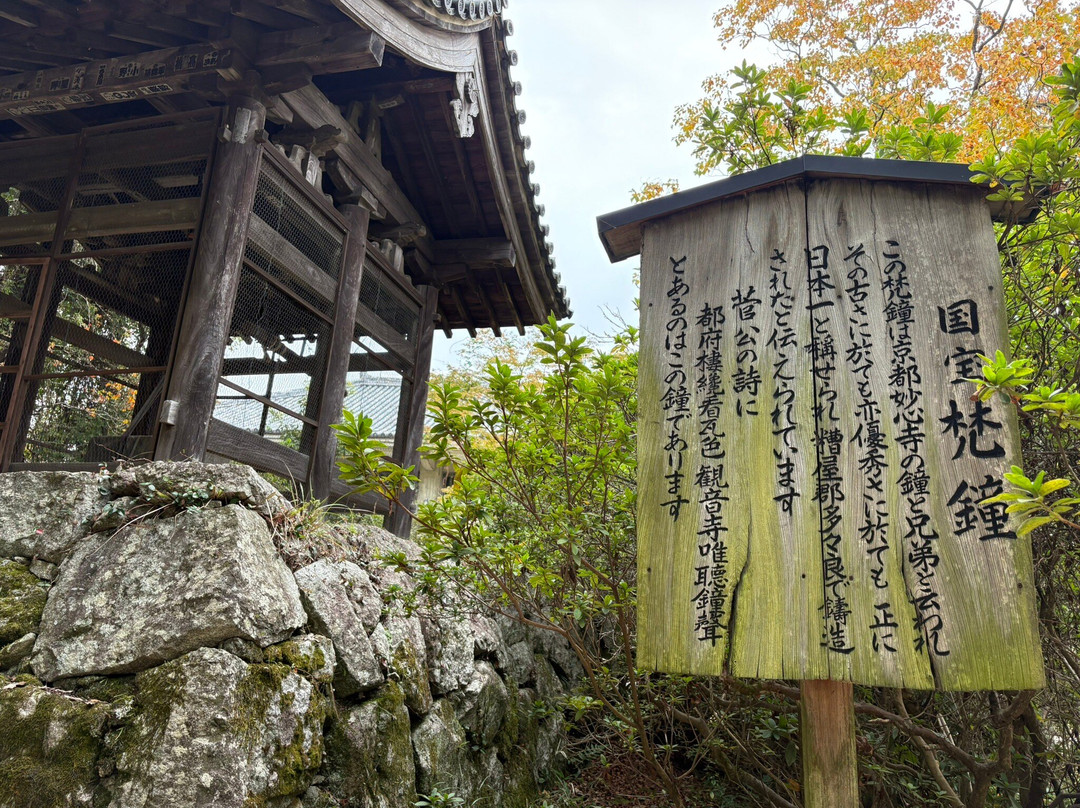 国宝梵鐘
この梵鐘は京都妙心寺の鐘と兄弟と云われ
その古さに於ても亦優秀さに於ても 正に
日本一と稱せられ 糟屋郡多々良で鋳造
されたと伝えられています
菅公の詩に
都府樓纔看瓦色 觀音寺唯聽鐘聲
とあるのはこの鐘であります